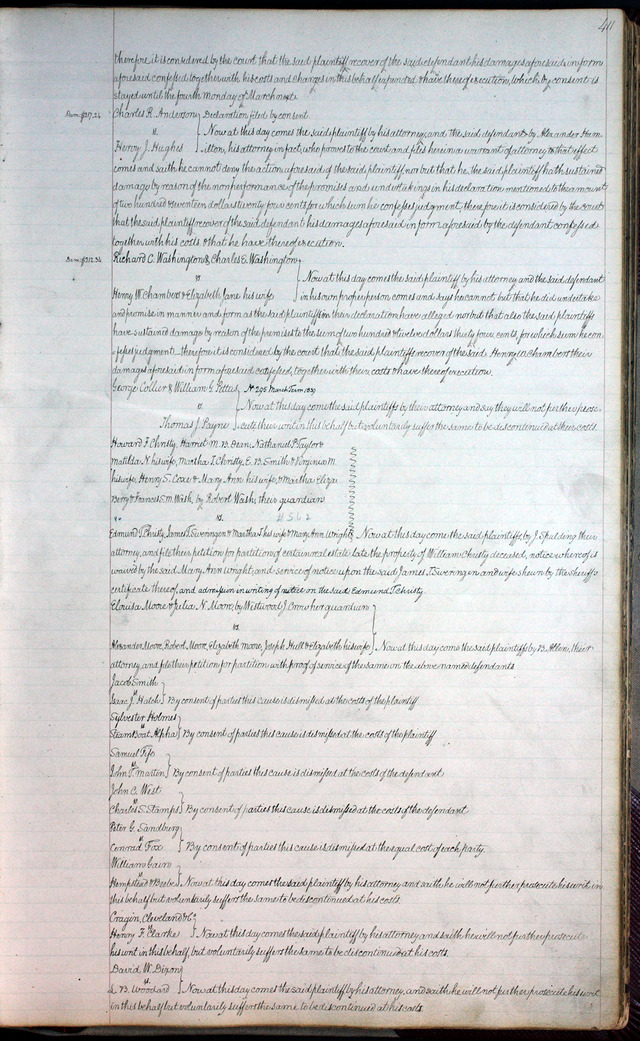 411
therefore it is considered by the court that the said plaintiff recover of the said defendant his damages aforesaid in form
aforesaid confessed together with his costs and charges in this behalf expended & have thereof execution, which by consent is
stayed until the fourth monday of March next
Charles R. Anderson Declaration filed by consent
vs. Now at this day comes the said plaintiff by his attorney, and the said defendant by Alexander Ham
Henry J. Hughes ilton, his attorney in fact, who proves to the court and files herein a warrant of attorney to that effect
comes and saith he cannot deny the action aforesaid of the said plaintiff nor but that he, the said plaintiff hath sustained
damage by reason of the nonperformance of the promises and undertakings in his declaration mentioned to the amount
of two hundred & seventeen dollars twenty four cents for which sum he confesses judgment, therefore it is considered by the court
that the said plaintiff recover of the said defendant his damages aforesaid in form aforesaid by the defendant confessed
together with his costs & that he have thereof execution.
Richard C. Washington & Charles E. Washington
vs Now at this day comes the said plaintiff by his attorney and the said defendant
Henry W Chambers & Elizabeth Jane his wife in his own proper person comes and says he cannot but that he did undertake
and promise in manner and form as the said plaintiffs in their declaration have alleged nor but that also the said plaintiffs
have sustained damage by reason of the premises to the sum of two hundred & twelve dollars thirty four cents, for which sum he con-
fesses judgment therefore it is considered by the court that the said plaintiffs recover of the said Henry W Chambers their
damages aforesaid in form aforesaid confessed, together with their costs & have thereof execution.
George Collier & William G Pettus No 295 March Term 1839
vs. Now at this day come the said plaintiffs by their attorney and say they will not further prose-
Thomas J. Payne cute their writ in this behalf but voluntarily suffer the same to be discontinued at their costs.
Howard F. Christy, Harriet M. B. Dean, Nathaniel P. Taylor &
Matilda N. his wife, Martha T. Christy, E. B. Smith & Virginia M
his wife, Henry S. Coxe & Mary Ann his wife, & Martha Eliza
Berry & Frances S. M. Wash, by Robert Wash, their guardian
vs.
Edmund T. Christy, James T. Sweringen & Martha T. his wife & Mary Ann Wright Now at this day comes the said plaintiffs, by J. Spalding their
attorney, and file their petition for partition of certain real estate late the property of William Christy deceased, notice whereof is
waived by the said Mary Ann Wright, and service of notice upon the said James T. Sweringen and wife shewn by the sheriff's
certificate thereof, and admission in writing of notice on the said Edmund T. Christy.
Elouisa Moore & Julia N. Moore, by Wistwood J. Crow her guardian
vs
Alexander Moore, Robert Moore, Elizabeth Moore, Joseph Hull & Elizabeth his wife Now at this day come the said plaintiffs by B. Allen, their
attorney, and file their petition for partition with proof of service of the same on the above named defendants
Jacob Smith
vs
Isaac J. Hatch By consent of parties this cause is dismissed at the costs of the plaintiff.
Sylvester Holmes
vs
Steam Boat Alpha By consent of parties this cause is dismissed at the costs of the plaintiff
Samuel Fife
vs
John T. Martin By consent of parties this cause is dismissed at the costs of the defendant
John C. West
vs
Charles S. Stamps By consent of parties this cause is dismissed at the costs of the defendant
Peter G. Sandburg
vs
Conrad Fox By consent of parties this cause is dismissed at the equal cost of each party.
William Cairn
vs
Hempstead & Beebe Now at this day comes the said plaintiff by his attorney and saith he will not further prosecute his writ in
this behalf but voluntarily suffers the same to be discontinued at his costs
Cragin, Cleveland & Co.
vs
Henry F. Clarke Now at this day comes the said plaintiff by his attorney and saith he will not further prosecute
his writ in this behalf, but voluntarily suffers the same to be discontinued at his costs.
David W. Dixon
vs
L. B. Woodard Now at this day comes the said plaintiff by his attorney, and saith he will not further prosecute his writ
in this behalf but voluntarily suffers the same to be discontinued at his costs.